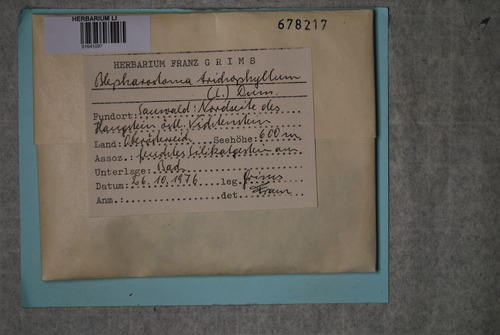 HERBARIUM LI
678217
HERBARIUM FRANZ GRIMS
Blepharostoma trichophyllum
(L.) Dum.
Fundort: Sauwald: Nordseite des
Haugstein östl. Vichtenstein
Land: Oberösterreich Seehöhe: 600 m
Assoz.: feuchtes Silikatgestein am
Unterlage: Bach
Datum: 26.10.1976 leg. Grims
Anm.: det. Franz